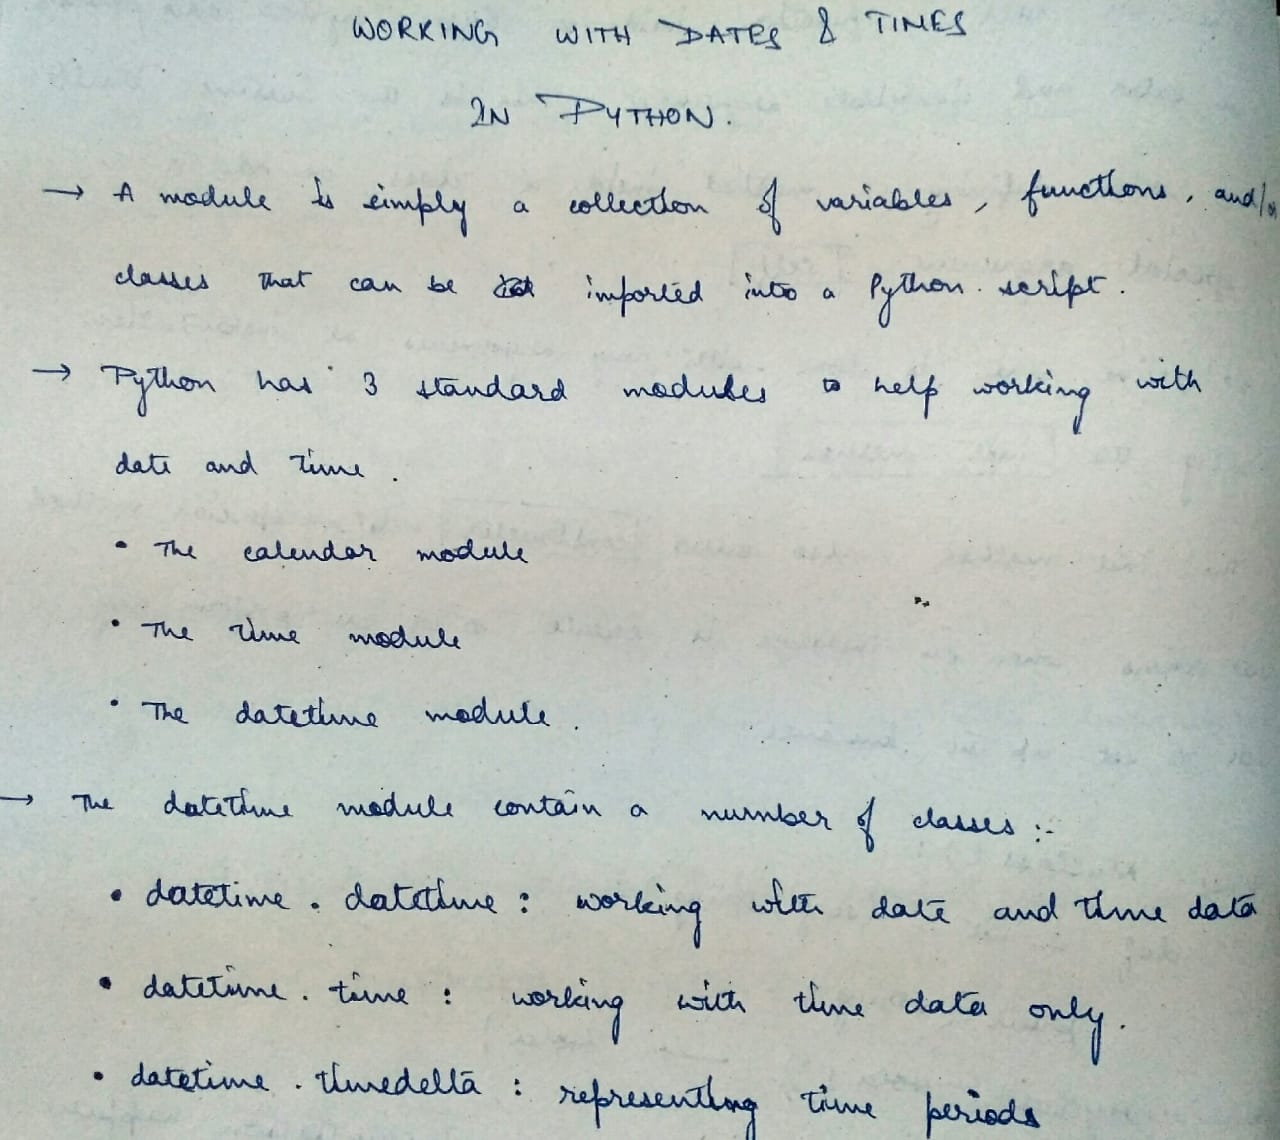 WORKING WITH DATES & TIMES
IN PYTHON.
→ A module is simply a collection of variables, functions, and/or
classes that can be imported into a Python script.
→ Python has 3 standard modules to help working with
date and time.
• The calendar module
• The time module
• The datetime module.
→ The datetime module contain a number of classes :-
• datetime . datetime : working with date and time data
• datetime . time : working with time data only.
• datetime . timedelta : representing time periods